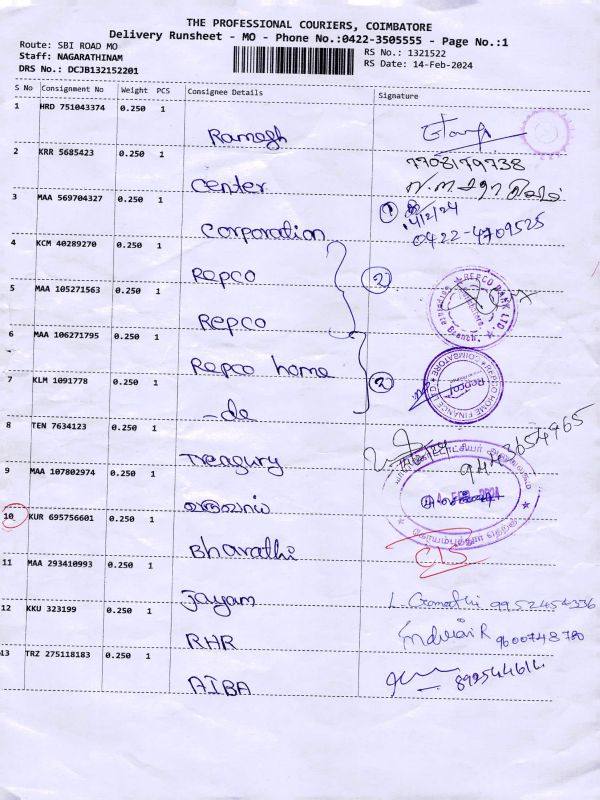 THE PROFESSIONAL COURIERS, COIMBATORE
Delivery Runsheet - MO - Phone No.:0422-3505555 - Page No.:1
Route: SBI ROAD MO
RS No.: 1321522
Staff: NAGARATHINAM
RS Date: 14-Feb-2024
DRS No.: DCJB132152201
S No Consignment No Weight PCS Consignee Details Signature
1 HRD 751043374 0.250 1
Ramesh
2 KRR 5685423 0.250 1 7708179738
Center
3 MAA 569704327 0.250 1 1 14/2/24
Corporation 0422-4709525
4 KCM 40289270 0.250 1
Repco 2
5 MAA 105271563 0.250 1 REPCO BANK LTD
Repco
6 MAA 106271795 0.250 1
Repco home
7 KLM 1091778 0.250 1 2 REPCO HOME FINANCE COIMBATORE Repco
-do
8 TEN 7634123 0.250 1
Treasury
9 MAA 107802974 0.250 1
10 KUR 695756601 0.250 1
Bharathi
11 MAA 293410993 0.250 1
Jayam L. Gomathi 9952454336
12 KKU 323199 0.250 1
RHR Indurani R 9600748780
13 TRZ 275118183 0.250 1
AIBA 892544614